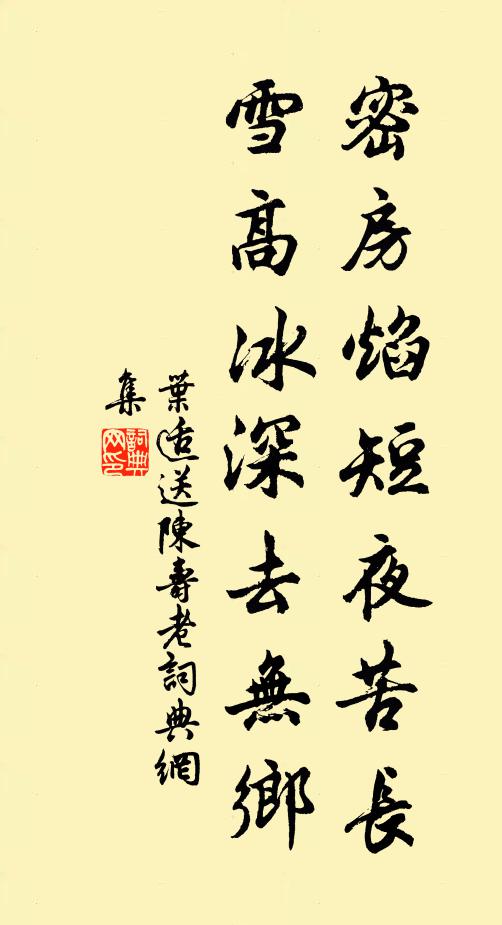 密房焰短夜苦長
雪高冰深去無鄉
葉適送陳壽老詞典網
集
詞典网印